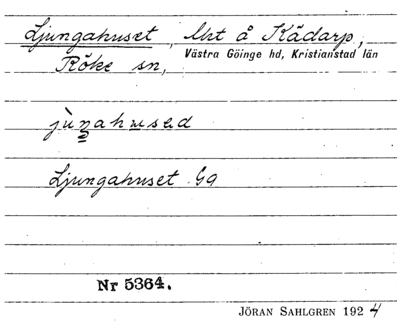 Ljungahuset, lht å Kädarp,
Västra Göinge hd, Kristianstad län
Röke sn,
Ljungahuset Ga
Nr 5364.
JÖRAN SAHLGREN 1924